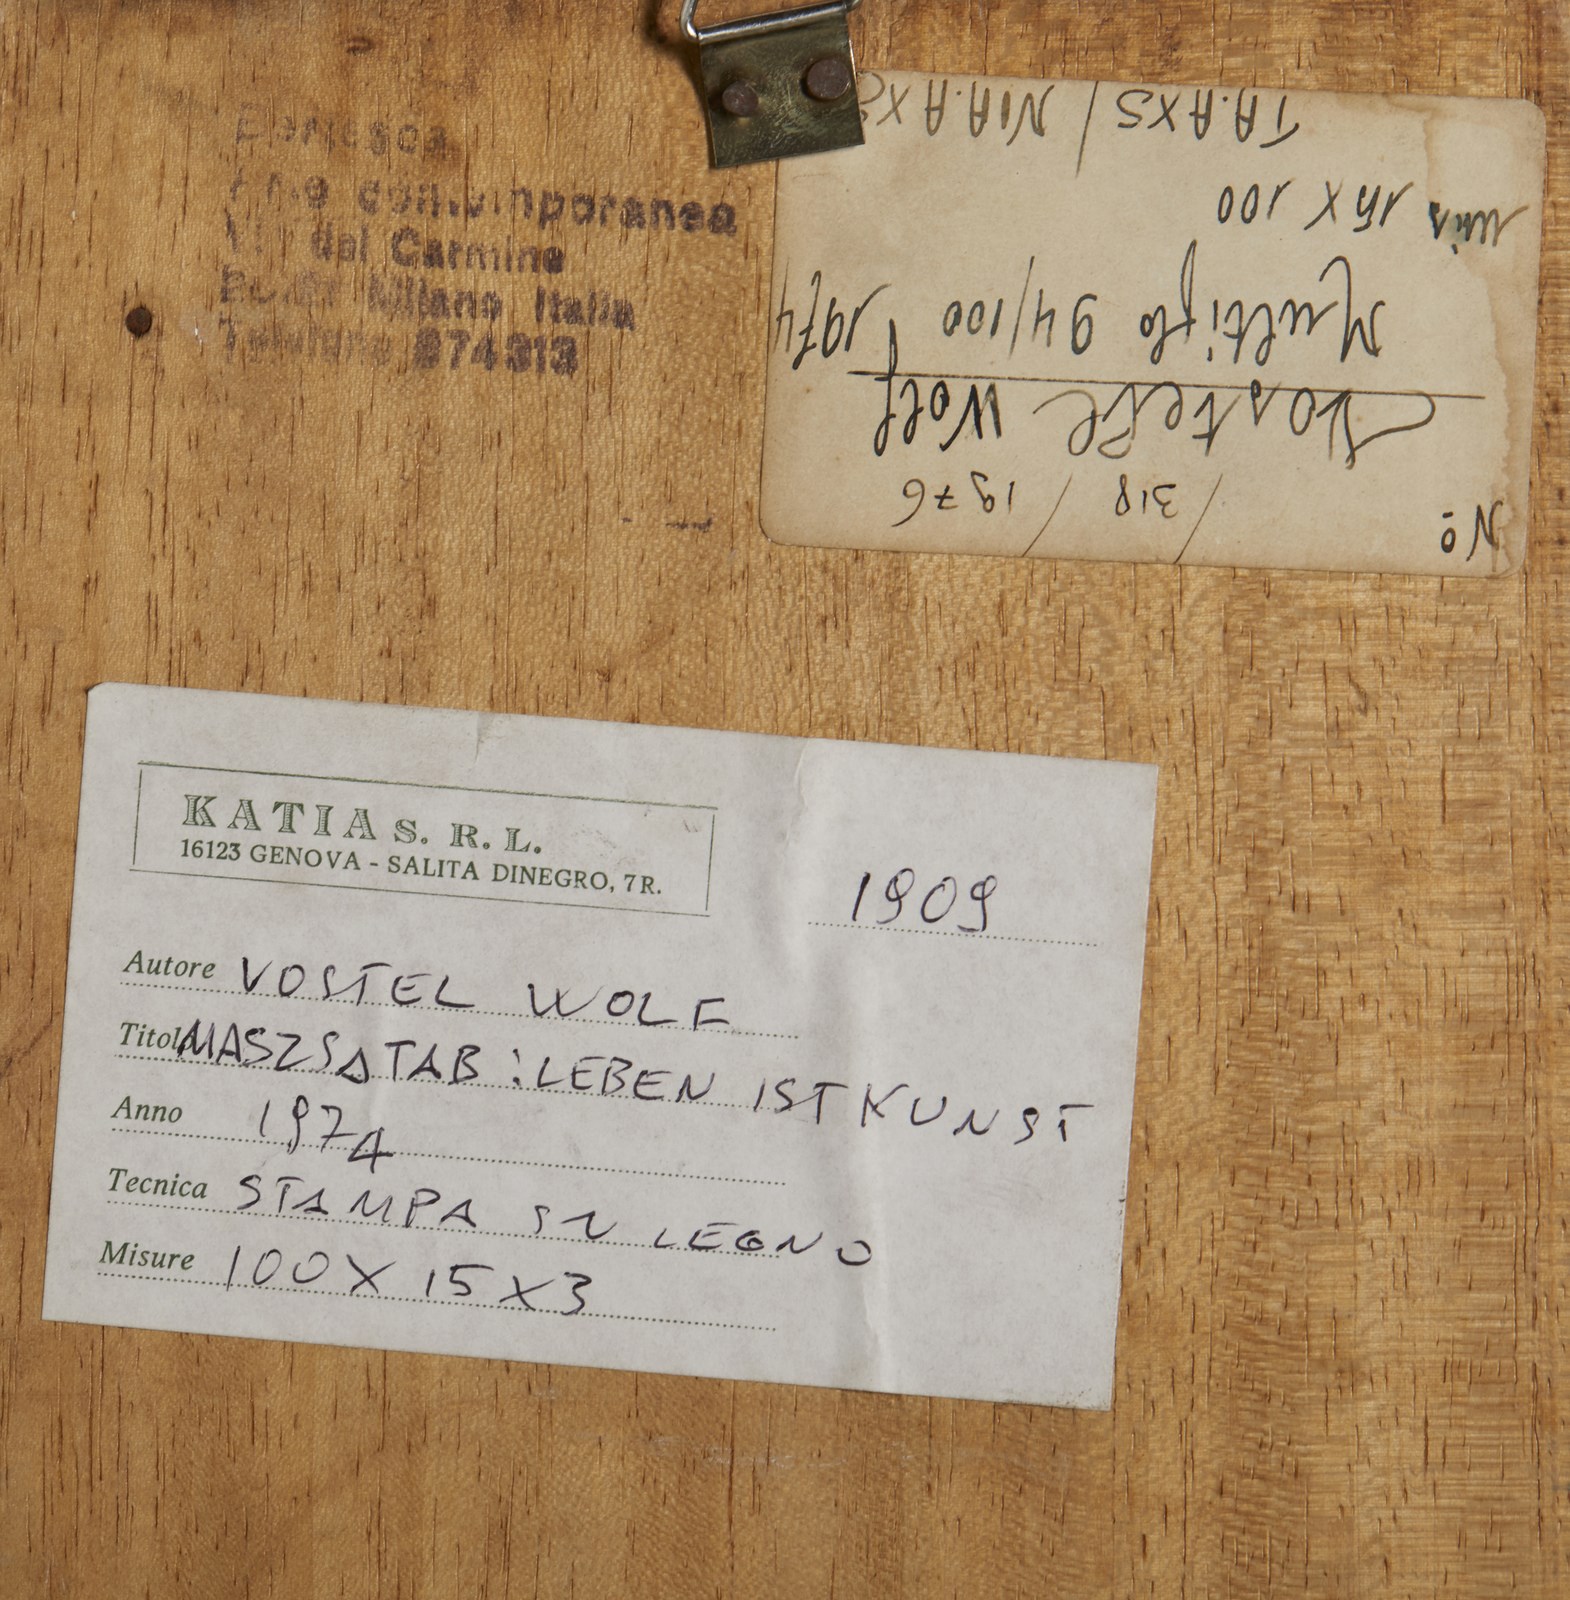 contemporanea
del Carmine
Milano Italia
Telefono 874313
No / 318 / 1976
Vostell Wolf
Multiplo 94/100 1974
mis 15 X 100
KATIA S. R. L.
16123 GENOVA - SALITA DINEGRO, 7 R.
1909
Autore VOSTEL WOLF
Titolo MASZSATAB : LEBEN IST KUNST
Anno 1974
Tecnica STAMPA SU LEGNO
Misure 100 X 15 X 3